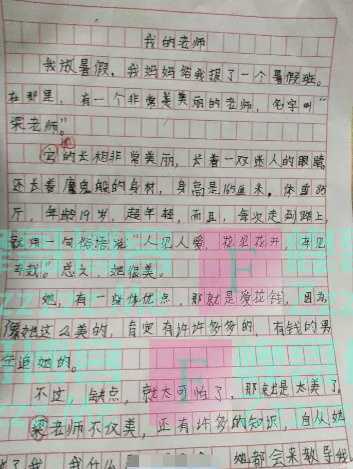 我的老师
我放暑假，我妈妈给我报了一个暑假班。
在那里，有一个非常美美丽的老师，名字叫“
梁老师”。
她
它的长相非常美丽，长着一双迷人的眼睛
还长着魔鬼般的身材，身高是 米，体重
斤，年龄19岁，超年轻，而且，每次走到路上，
就用一句俗语说“人见人爱，花见花开，车见
车载”。总之，她很美。
她，有一 优点，那就是爱花钱，因为
像她这么美的，肯定有许许多多的，有钱的男
生追她的。
不过，缺点，就太可惜了，那就是太美了，
梁老师不仅美，还有许多的知识，自从她
教了我，我什么 她都会来教导我